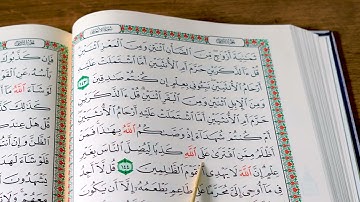 ثَمَٰنِيَةَ أَزْوَٰجٍ مِّنَ ٱلضَّأْنِ ٱثْنَيْنِ وَمِنَ ٱلْمَعْزِ ٱثْنَيْنِ
قُلْ ءَآلذَّكَرَيْنِ حَرَّمَ أَمِ ٱلْأُنثَيَيْنِ أَمَّا ٱشْتَمَلَتْ عَلَيْهِ
أَرْحَامُ ٱلْأُنثَيَيْنِ نَبِّـُٔونِى بِعِلْمٍ إِن كُنتُمْ صَٰدِقِينَ ١٤٣
وَمِنَ ٱلْإِبِلِ ٱثْنَيْنِ وَمِنَ ٱلْبَقَرِ ٱثْنَيْنِ قُلْ ءَآلذَّكَرَيْنِ
حَرَّمَ أَمِ ٱلْأُنثَيَيْنِ أَمَّا ٱشْتَمَلَتْ عَلَيْهِ أَرْحَامُ ٱلْأُنثَيَيْنِ
أَمْ كُنتُمْ شُهَدَآءَ إِذْ وَصَّىٰكُمُ ٱللَّهُ بِهَٰذَا فَمَنْ
أَظْلَمُ مِمَّنِ ٱفْتَرَىٰ عَلَى ٱللَّهِ كَذِبًا لِّيُضِلَّ ٱلنَّاسَ بِغَيْرِ
عِلْمٍ إِنَّ ٱللَّهَ لَا يَهْدِى ٱلْقَوْمَ ٱلظَّٰلِمِينَ ١٤٤ قُل لَّآ أَجِدُ
فِى مَآ أُوحِىَ إِلَىَّ مُحَرَّمًا عَلَىٰ طَاعِمٍ يَطْعَمُهُۥٓ إِلَّآ أَن يَكُونَ